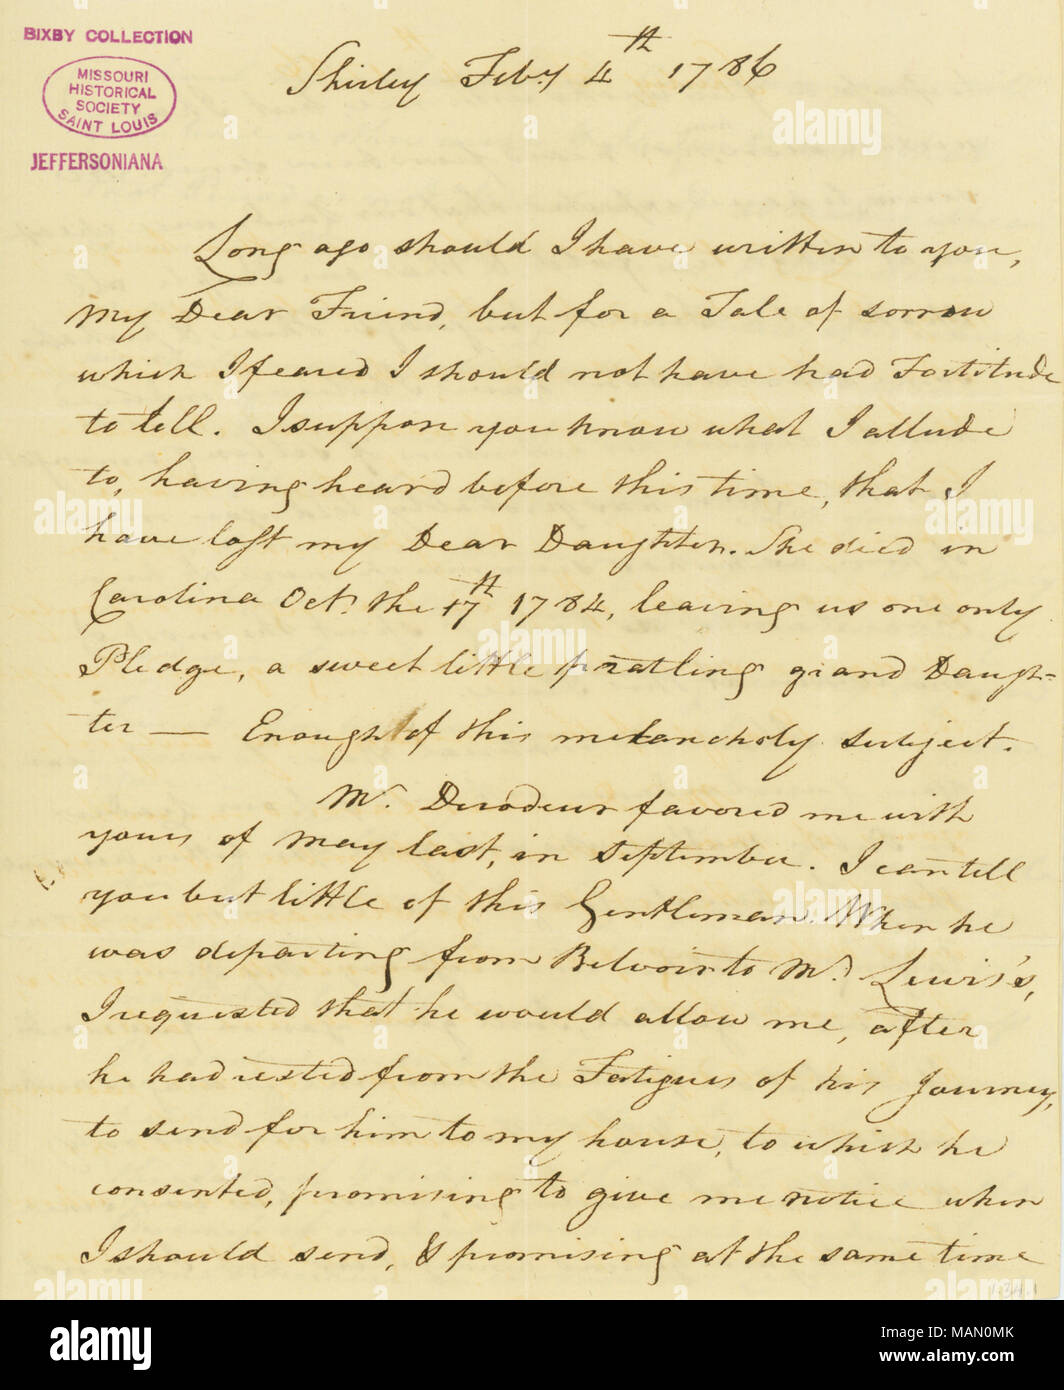 BIXBY COLLECTION
MISSOURI
HISTORICAL
SOCIETY
SAINT LOUIS
JEFFERSONIANA
Shirley Feby 4th 1786
Long ago should I have written to you,
my Dear Friend, but for a Tale of sorrow
which I feared I should not have had Fortitude
to tell. I suppose you know what I allude
to, having heard before this time, that I
have lost my Dear Daughter. She died in
Carolina Oct. the 17th 1784, leaving us one only
Pledge, a sweet little pratling grand Daugh-
ter — Enough of this melancholy subject.
Mr. Deradeur favored me with
yours of May last, in September. I can tell
you but little of this Gentleman. When he
was departing from Belvoir to Mr. Lewis's,
I requested that he would allow me, after
he had rested from the Fatigues of his Journey,
to send for him to my house, to which he
consented, promising to give me notice when
I should send, & promising at the same time
alamy
Image ID: MAN0MK
www.alamy.com